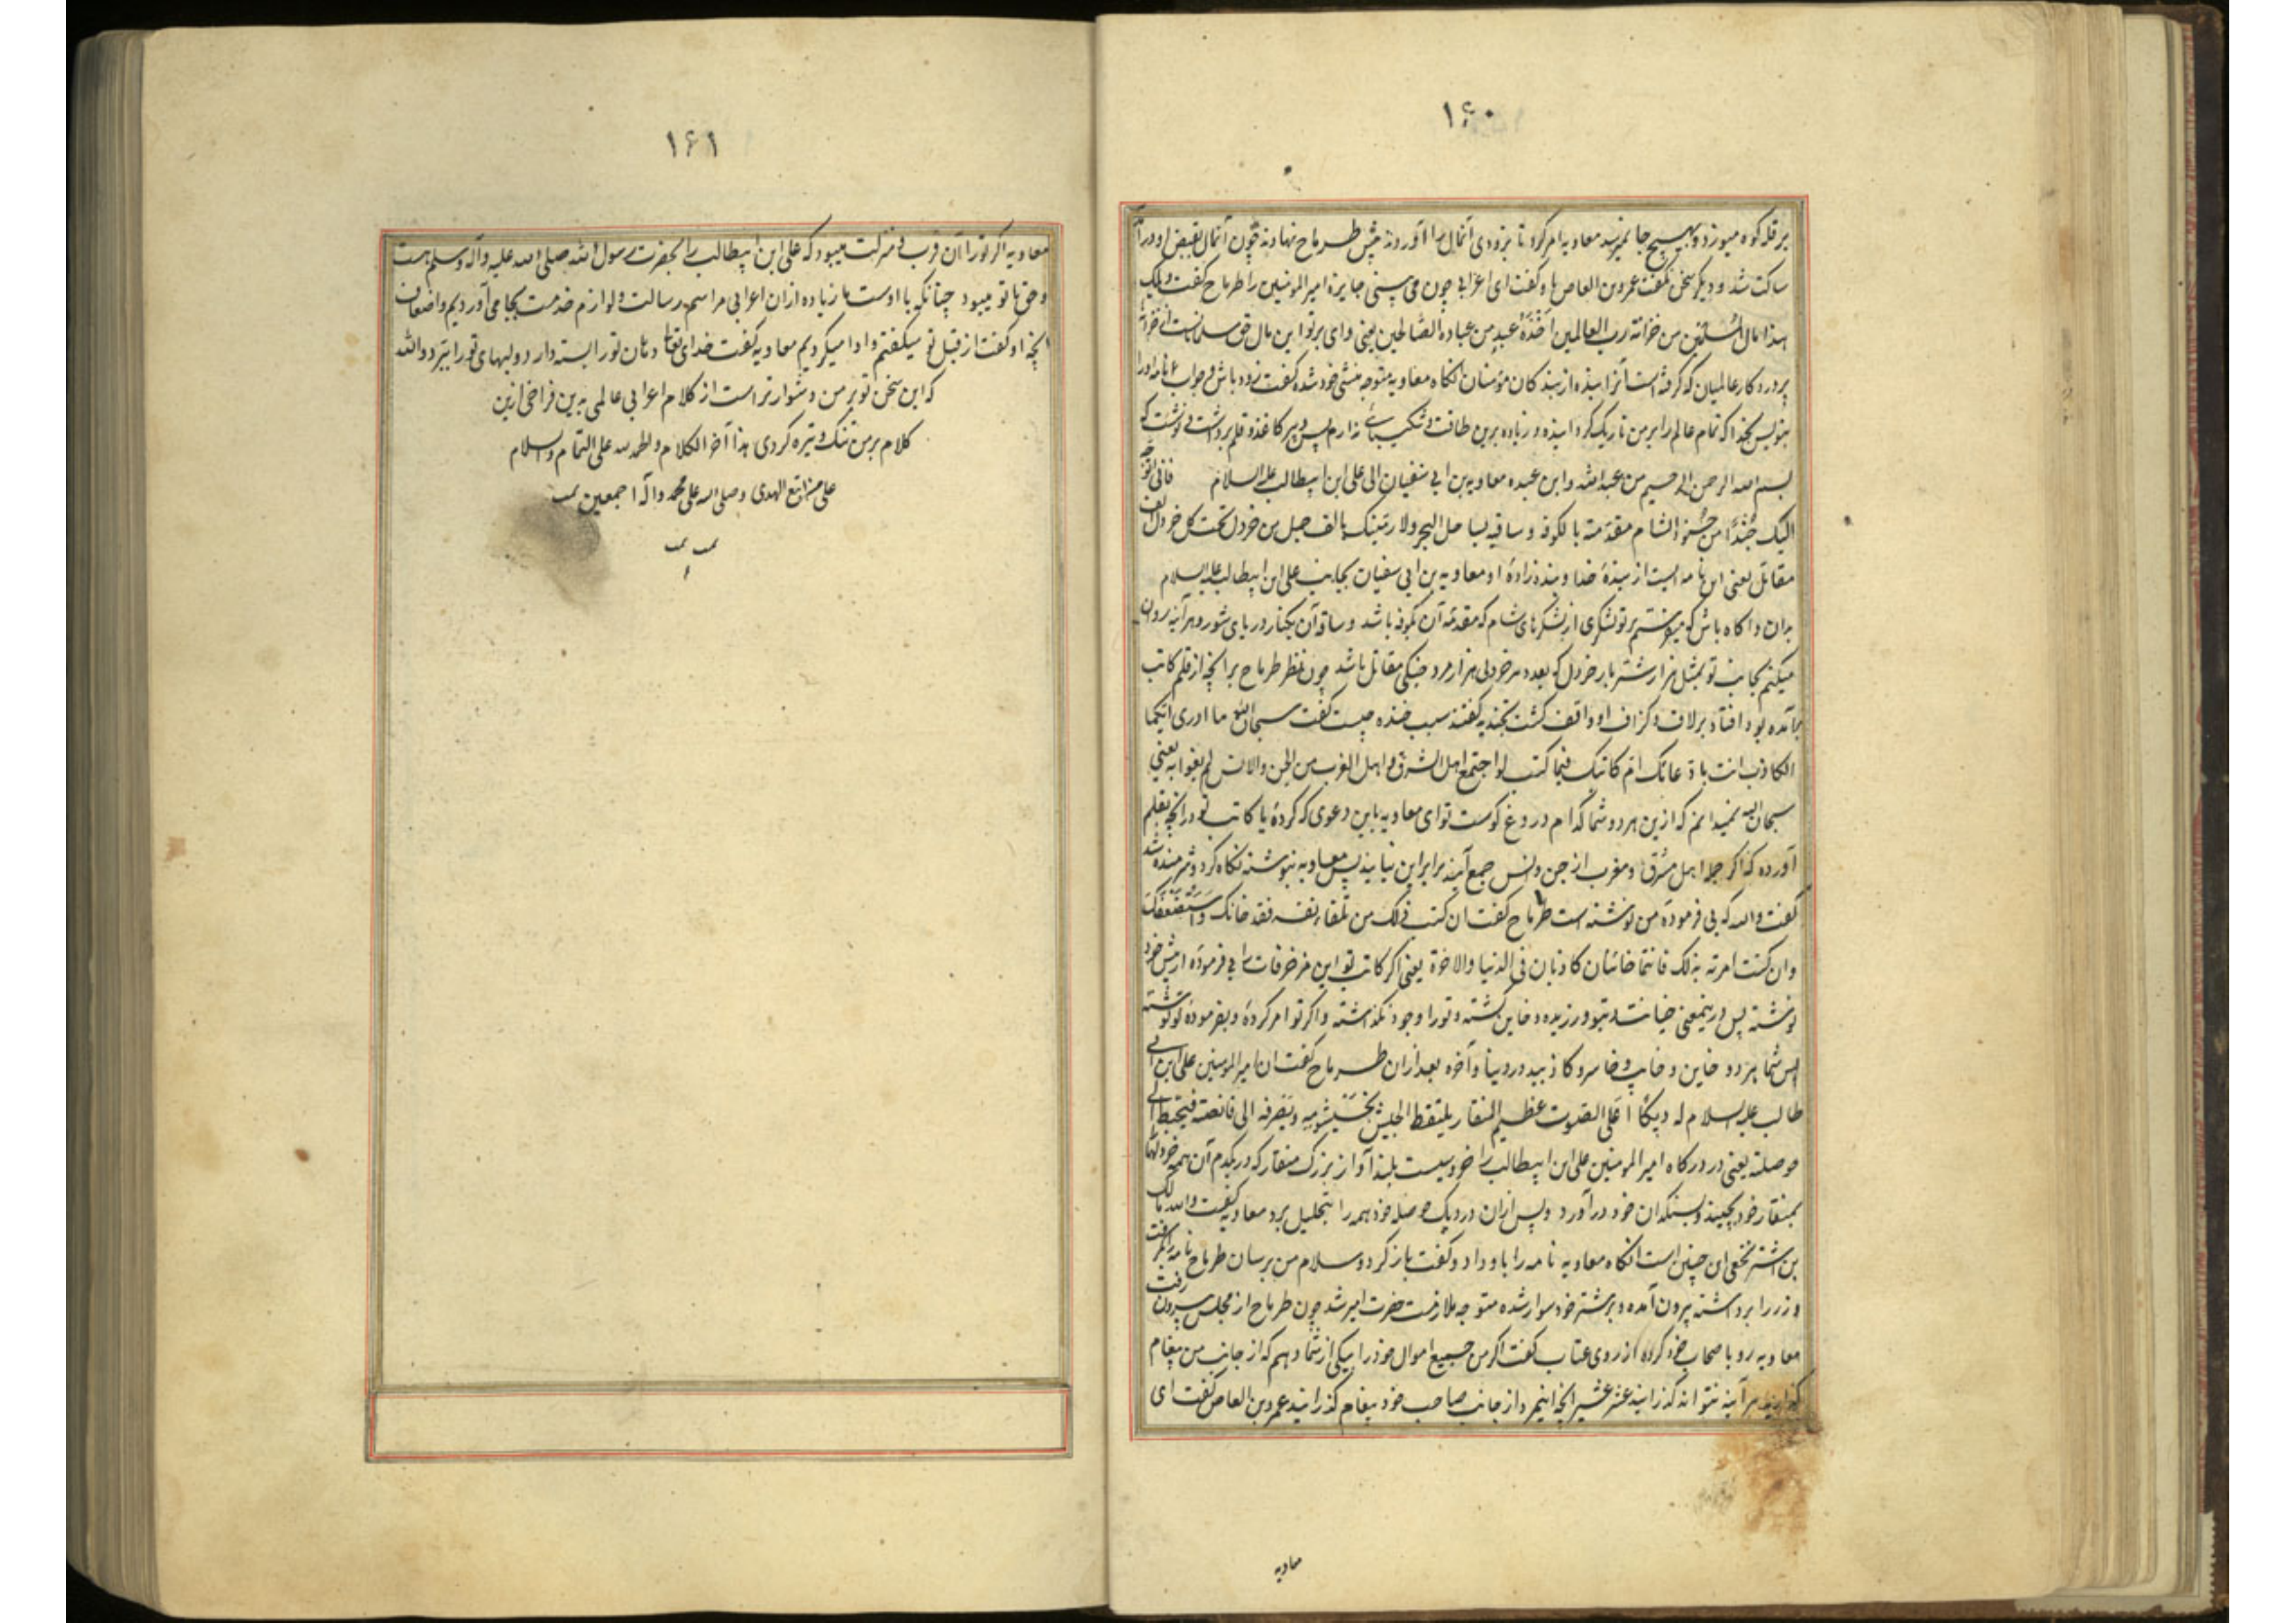 ۱۶۰
بر قله کوه میوزد و بهیچ جا نمیرسد معاویه امر کرد تا بزودی آنمال را آوردند پیش طرماح نهادند چون آنمال بقبض او درآمد
ساکت شد و دیگر سخن نگفت عمرو بن العاص باو گفت ای اعرابی چون می بینی جایزه امیر المومنین را طرماح گفت ویلک
هذا مال المسلمین من خزانة رب العالمین اخذه عبد من عباده الصالحین یعنی وای بر تو این مال حق مسلمانانست از خزانه
پروردکار عالمیان که گرفته است آنرا بنده از بندکان مؤمنان آنکاه معاویه متوجه منشی خود شده گفت زود باش و جواب نامه او را
بنویس بخدا که تمام عالم را بر من تاریک کرد و زیاده برین طاقت و شکیبائی ندارم پس دبیر کاغذ و قلم برداشت و نوشت که
بسم الله الرحمن الرحیم من عبد الله وابن عبده معاویه بن ابی سفیان الی علی ابن ابیطالب علیه السلام فانی اوجه
الیک جندا من جنود الشام مقدمته بالکوفه و ساقیه بساحل البحر ولا رمینک بالف حمل من خردل تحت کل خردل الف
مقاتل یعنی این نامه ایست از بندهٔ خدا و بنده زادهٔ او معاویه بن ابی سفیان بجانب علی ابن ابیطالب علیه السلام
بدان و آکاه باش که میفرستم بر تو لشکری از لشکرهای شام که مقدمه آن بکوفه باشد و ساقه آن بکنار دریای شور و هر آینه روان
میکنم بجانب تو بمثل هزار شتر بار خردل که بعدد هر خردلی هزار مرد جنکی مقاتل باشد چون نظر طرماح بر آنچه از قلم کاتب
برآمده بود افتاد بر لاف و گزاف او واقف گشت بخندید گفتند سبب خنده چیست گفت سبحان الله ما ادری ایکما
الکاذب انت بادعائک ام کاتبک فیما کتب لو اجتمع اهل الشرق و اهل الغرب من الجن والانس لم یفوا به یعنی
سبحان الله نمیدانم که ازین هر دو شما کدام دروغ کوست تو ای معاویه باین دعوی که کردهٔ یا کاتب تو در آنچه بقلم
آورده که اگر جمله اهل مشرق و مغرب از جن و انس جمع آیند برابر این نیایند پس معاویه بنوشته نکاه کرد و شرمنده شد
گفت والله که بی فرمودهٔ من نوشته است طرماح گفت ان کتب ذلک من تلقاء نفسه فقد خانک واستضعفک
وان کنت امرته بذلک فانتما خائنان کاذبان فی الدنیا والاخرة یعنی اگر کاتب تو این مزخرفات را بی فرمودهٔ از پیش خود
نوشته پس درینمعنی خیانت بتو ورزیده و خاین گشته و تو را وجود نگذاشته و اگر تو امر کردهٔ و بفرمودهٔ تو نوشته
پس شما هر دو خاین و خایب و خاسر و کاذبید در دنیا و آخره بعد ازان طرماح گفت ان امیر المومنین علی ابن ابی
طالب علیه السلام له دیکا اعلی الصوت عظیم المنقار یلتقط الجیش بخیشومه و یصرفه الی قانصه فیحتطه الی
حوصلته یعنی در درکاه امیر المومنین علی ابن ابیطالب را خروسیست بلند آواز بزرک منقار که در یکدم آن همه خردلها
بمنقار خود بچیند و بسنکدان خود درآورد و پس ازان در دیک حوصله خود همه را بتحلیل برد معاویه گفت والله مالک
بن اشتر نخعی این چنین است آنکاه معاویه نامه را باو داد و گفت باز گرد و سلام من برسان طرماح نامه را گرفت
و زر را برداشته بیرون آمده و بر شتر خود سوار شده متوجه ملازمت حضرت امیر شد چون طرماح از مجلس بیرون رفت
معاویه رو باصحاب خود کرده از روی عتاب گفت اگر من جمیع اموال خود را بیکی از شما دهم که از جانب من پیغام
گذراند هر آینه نتواند گذرانید عشر عشیر آنچه اینمرد از جانب صاحب خود پیغام گذرانید عمرو بن العاص گفت ای
معاویه
۱۶۱
معاویه اگر تو را آن قرب و منزلت میبود که علی ابن ابیطالب را بحضرت رسول الله صلی الله علیه وآله وسلم هست
و حق با تو میبود چنانکه با اوست ما زیاده ازان اعرابی مراسم رسالت و لوازم خدمت بجا می آوردیم و اضعاف
آنچه او گفت از قبل تو میگفتیم و ادا میکردیم معاویه گفت خدای تعالی دهان تو را بسته دارد و لبهای تو را ببرد والله
که این سخن تو بر من دشوارتر است از کلام اعرابی عالمی بدین فراخی ازین
کلام بر من تنک و تیره کردی هذا آخر الکلام والحمد لله علی التمام والسلام
علی من اتبع الهدی وصلی الله علی محمد وآله اجمعین تمت
تمت تمت
م